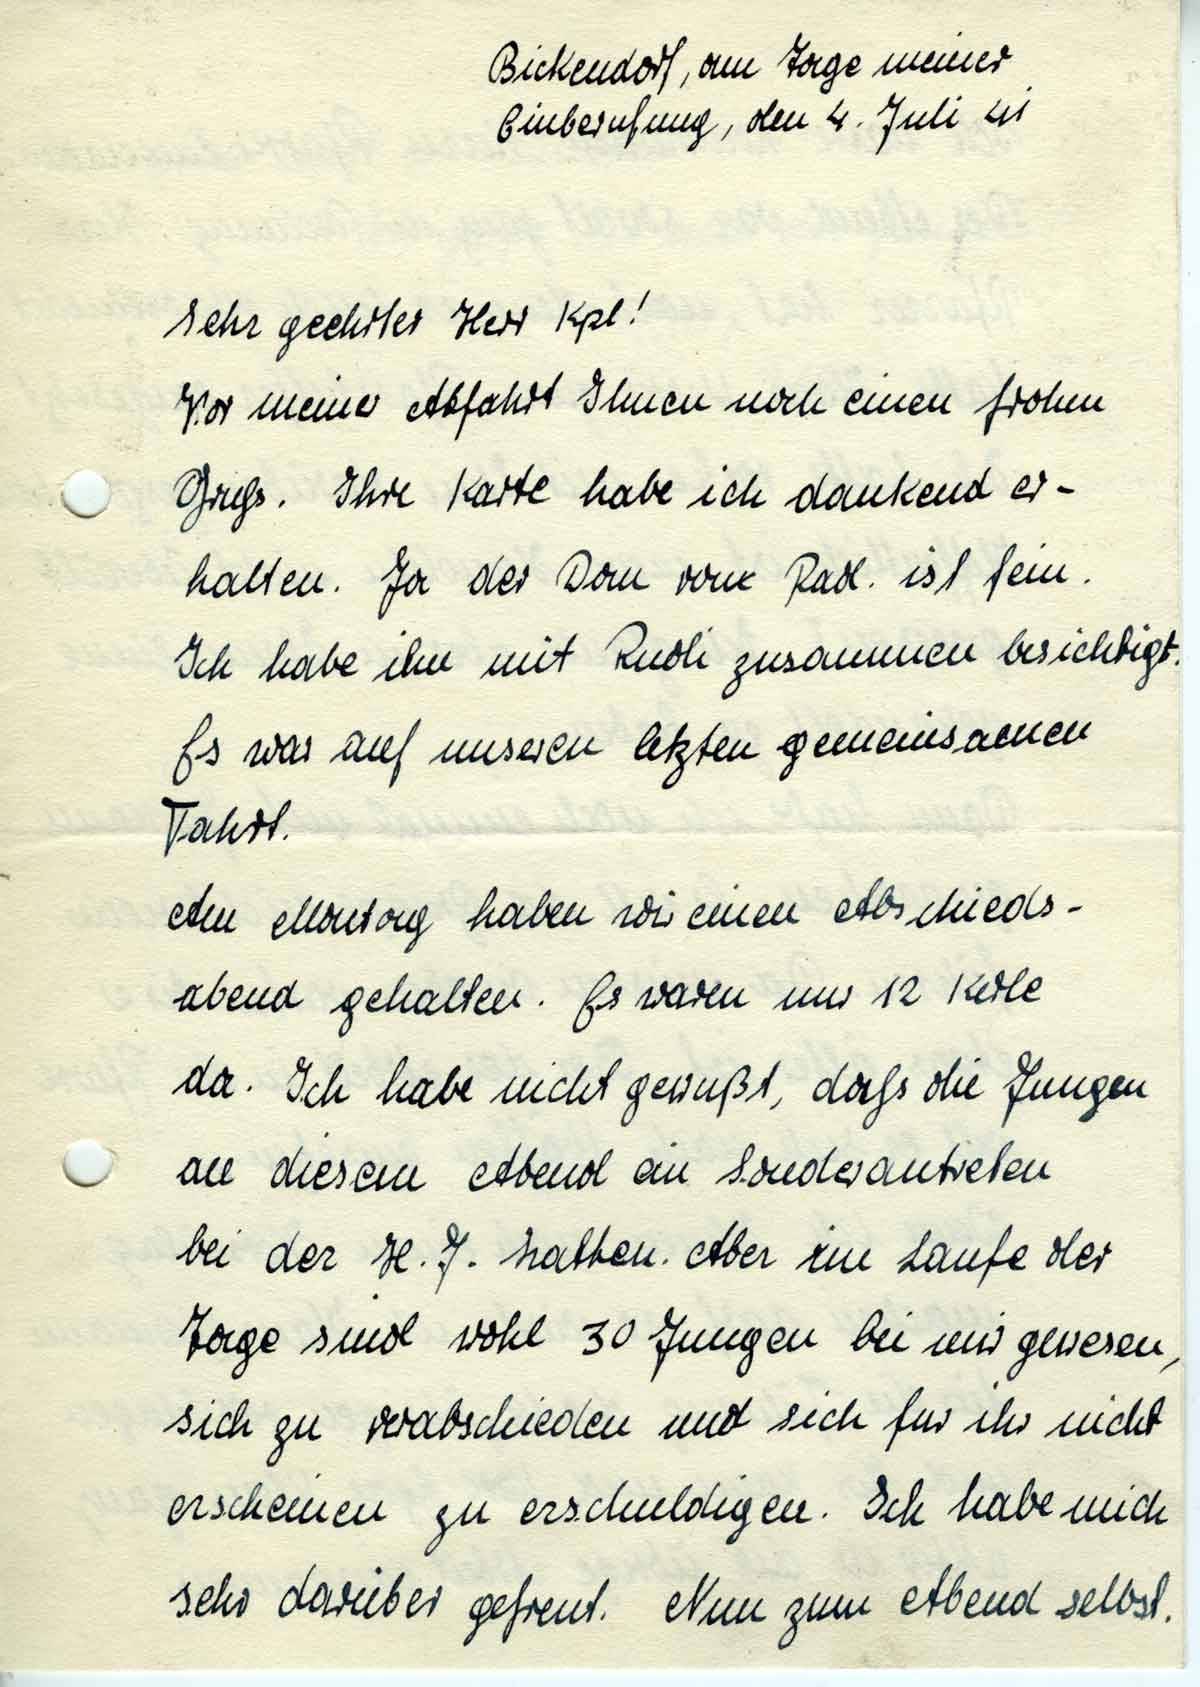 Bickendorf, am Tage meiner
Einberufung, den 4. Juli 41
Sehr geehrter Herr Kpl!
Vor meiner Abfahrt Ihnen noch einen frohen
Gruß. Ihre Karte habe ich dankend er-
halten. Ja der Dom von Rad. ist fein.
Ich habe ihn mit Rudi zusammen besichtigt.
Es war auf unseren letzten gemeinsamen
Fahrt.
Am Montag haben wir einen Abschieds-
abend gehalten. Es waren nur 12 Kerle
da. Ich habe nicht gewußt, daß die Jungen
an diesem Abend ein Sonderantreten
bei der H.J. hatten. Aber im Laufe der
Tage sind wohl 30 Jungen bei mir gewesen,
sich zu verabschieden und sich für ihr nicht
erscheinen zu erschuldigen. Ich habe mich
sehr darüber gefreut. Nun zum Abend selbst.